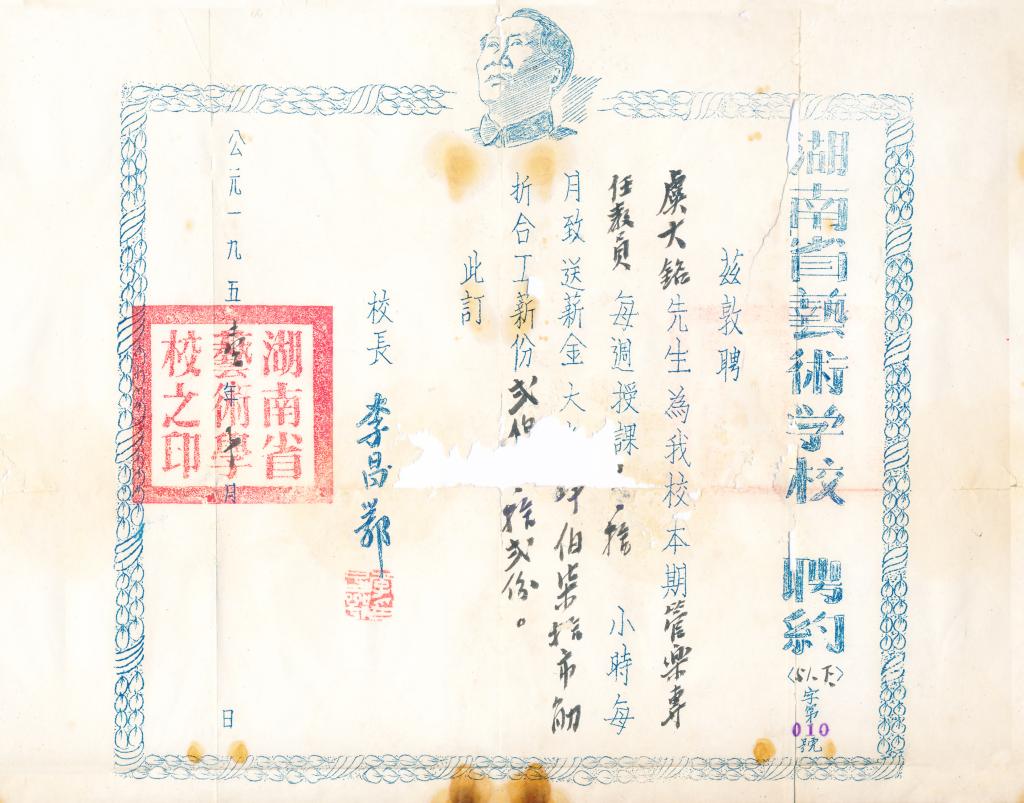 湖南省藝術学校 聘約
〈51.下〉
字第
010
號
茲敦聘
虞大銘先生為我校本期管樂專
任教員 每週授課 拾 小時每
月致送薪金大 伯柒拾市觔
折合工薪份弍 拾弍份。
此訂
校長 李昌鄂
公元一九五壹年 月 日
湖南省
藝術學
校之印